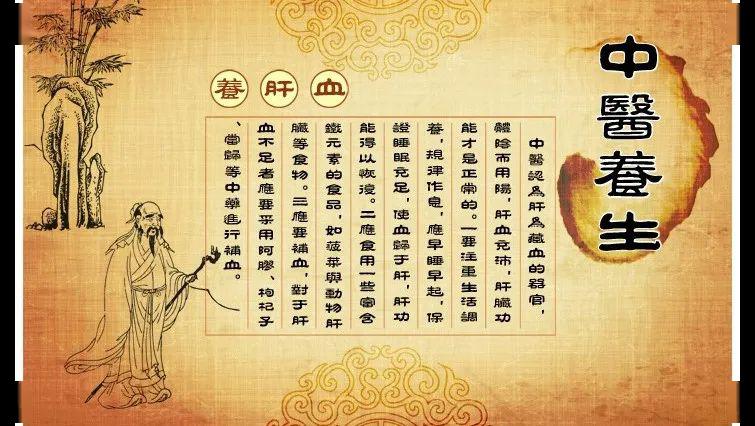 中醫養生
養肝血
中醫認為肝為藏血的器官，
體陰而用陽，肝血充沛，肝臟功
能才是正常的。一要注重生活調
養，規律作息，應早睡早起，保
證睡眠充足，使血歸于肝，肝功
能得以恢復。二應食用一些富含
鐵元素的食品，如菠菜與動物肝
臟等食物。三應要補血，對于肝
血不足者應要采用阿膠、枸杞子
、當歸等中藥進行補血。